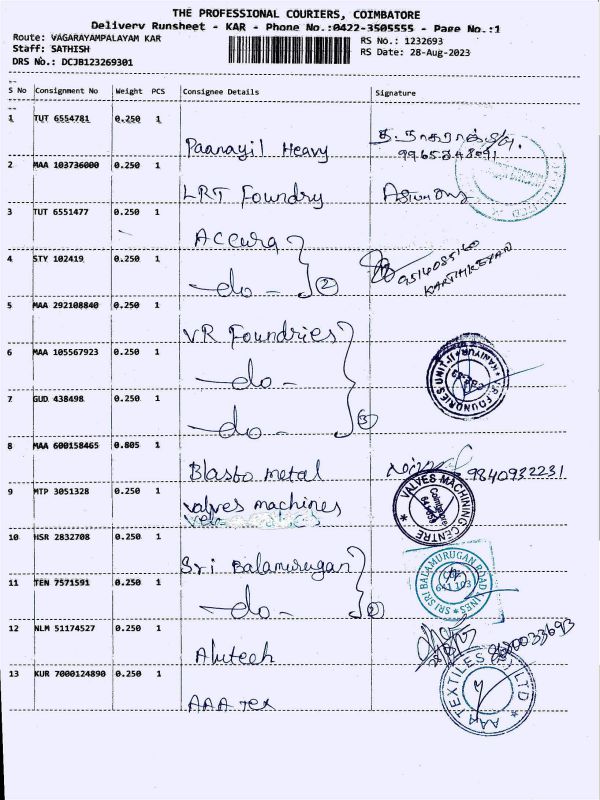 THE PROFESSIONAL COURIERS, COIMBATORE
Delivery Runsheet - KAR - Phone No.:0422-3505555 - Page No.:1
Route: VAGARAYAMPALAYAM KAR
RS No.: 1232693
Staff: SATHISH
RS Date: 28-Aug-2023
DRS No.: DCJB123269301
S No Consignment No Weight PCS Consignee Details Signature
1 TUT 6554781 0.250 1 Paanayil Heavy
2 MAA 103736000 0.250 1 LRT Foundry
3 TUT 6551477 0.250 1 Accura
4 STY 102419 0.250 1 -do- 2
KARTHIKEYAN
5 MAA 292108840 0.250 1 VR Foundries
6 MAA 105567923 0.250 1 -do-
V.R. FOUNDRIES UNIT-II KANIYUR
7 GUD 438498 0.250 1 -do- 3
8 MAA 600158465 0.805 1 Blasto metal 9840932231
9 MTP 3051328 0.250 1 Valves machines
VALVES MACHINING CENTRE Coimbatore
10 HSR 2832708 0.250 1 Sri Balamurugan
11 TEN 7571591 0.250 1 -do- 2
SRI SRI BALAMURUGAN ROAD LINES CBE 641 103
12 NLM 51174527 0.250 1 Alutech
13 KUR 7000124890 0.250 1 AAA Tex
AAA TEXTILES (P) LTD